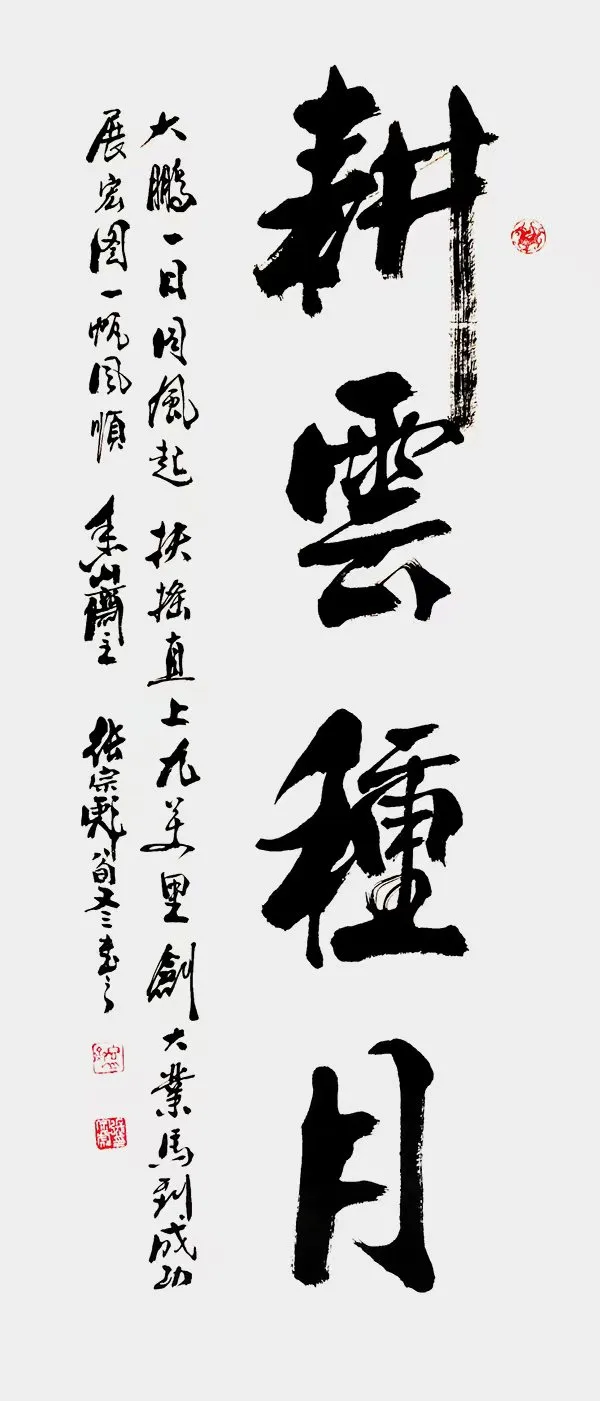 耕雲種月
大鵬一日同風起 扶搖直上九萬里 創大業馬到成功
展宏图一帆風順 山齋主 張宗彪 冬 書